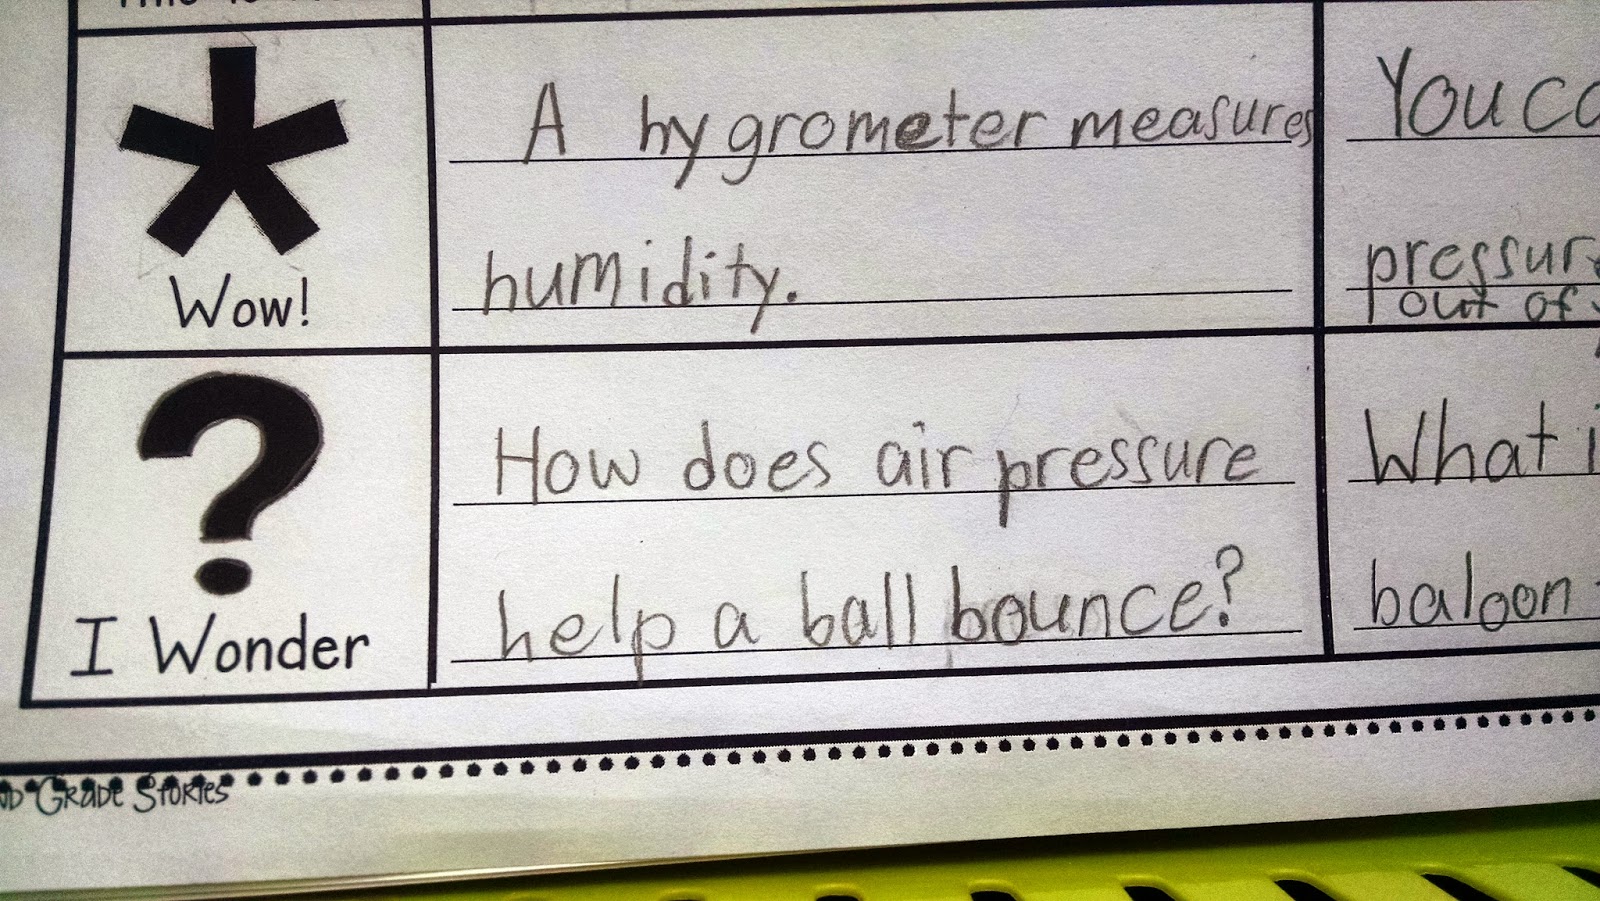 A hygrometer measures
humidity.
Wow!
You
out of
I Wonder
How does air pressure
help a ball bounce?
What
baloon
Grade Stories